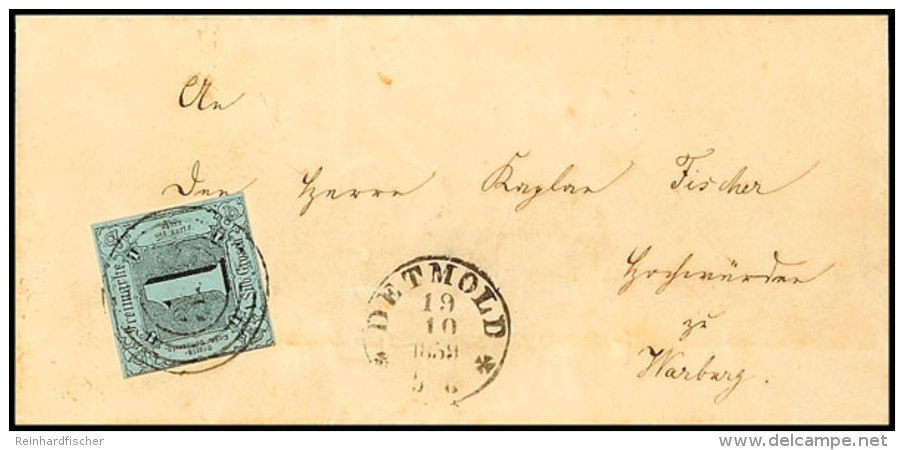 An
den Herrn Kaplan Fischer
Hochwürden
zu
Warburg.
Freimarke
1
DETMOLD
19
10
1859
5 6
Reinhardfischer
delcampe.net